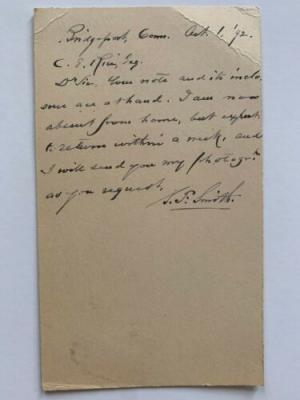 Bridgeport, Conn. Oct. 1, '92.
C. E. Rice, Esq.
Dr Sir, Your note and its inclo-
sure are at hand. I am now
absent from home, but expect
to return within a week, and
I will send you my photogr'h
as you request.
S. P. Smith.